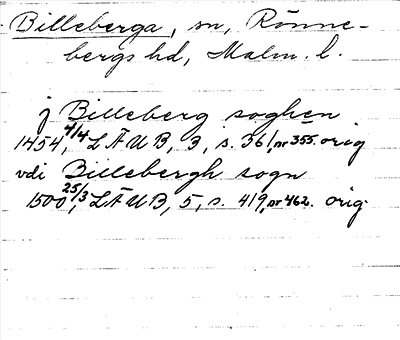 Billeberga, sn, Rönne-
bergs hd, Malm. l.
j Billeberg soghen
1454 4/4, LÄUB, 3, s. 361, nr 355. orig
vdi Billebergh sogn
1500 25/3, LÄUB, 5, s. 419, nr 462. orig.